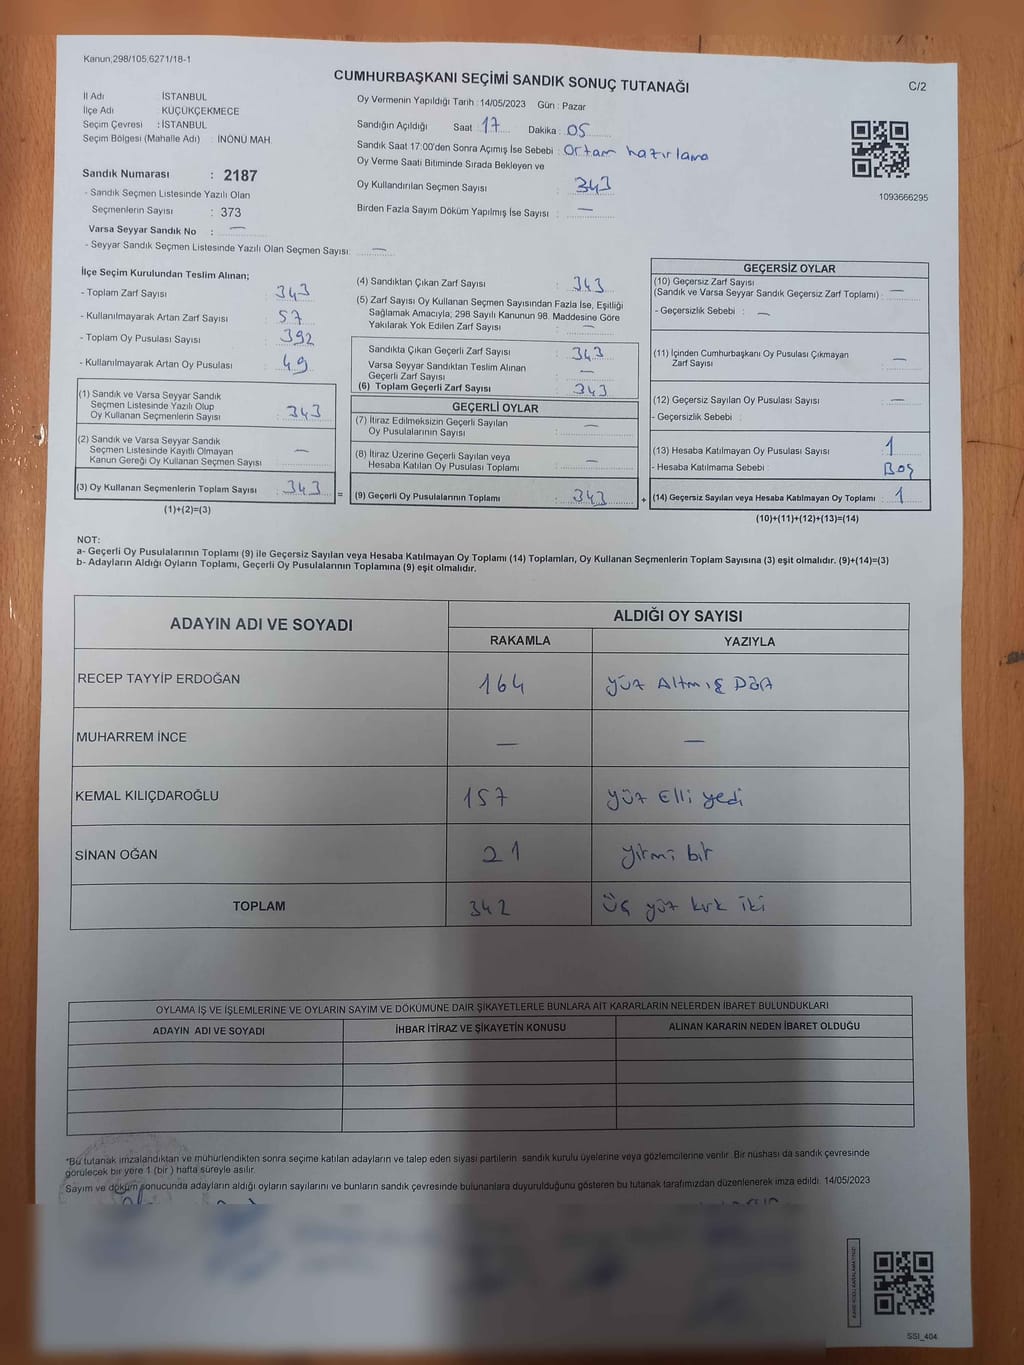 Kanun;298/105;6271/18-1
CUMHURBAŞKANI SEÇİMİ SANDIK SONUÇ TUTANAĞI
C/2
İl Adı : İSTANBUL
İlçe Adı : KÜÇÜKÇEKMECE
Seçim Çevresi : İSTANBUL
Seçim Bölgesi (Mahalle Adı) : İNÖNÜ MAH.
Sandık Numarası : 2187
- Sandık Seçmen Listesinde Yazılı Olan
Seçmenlerin Sayısı : 373
Varsa Seyyar Sandık No : —
- Seyyar Sandık Seçmen Listesinde Yazılı Olan Seçmen Sayısı: —
Oy Vermenin Yapıldığı Tarih : 14/05/2023 Gün : Pazar
Sandığın Açıldığı Saat : 17 Dakika : 05
Sandık Saat 17:00'den Sonra Açımış İse Sebebi : Ortam hazırlama
Oy Verme Saati Bitiminde Sırada Bekleyen ve
Oy Kullandırılan Seçmen Sayısı : 343
Birden Fazla Sayım Döküm Yapılmış İse Sayısı : —
1093666295
İlçe Seçim Kurulundan Teslim Alınan;
- Toplam Zarf Sayısı : 343
- Kullanılmayarak Artan Zarf Sayısı : 57
- Toplam Oy Pusulası Sayısı : 392
- Kullanılmayarak Artan Oy Pusulası : 49
(1) Sandık ve Varsa Seyyar Sandık
Seçmen Listesinde Yazılı Olup
Oy Kullanan Seçmenlerin Sayısı : 343
(2) Sandık ve Varsa Seyyar Sandık
Seçmen Listesinde Kayıtlı Olmayan
Kanun Gereği Oy Kullanan Seçmen Sayısı : —
(3) Oy Kullanan Seçmenlerin Toplam Sayısı : 343
(1)+(2)=(3)
=
(4) Sandıktan Çıkan Zarf Sayısı : 343
(5) Zarf Sayısı Oy Kullanan Seçmen Sayısından Fazla İse, Eşitliği
Sağlamak Amacıyla; 298 Sayılı Kanunun 98. Maddesine Göre
Yakılarak Yok Edilen Zarf Sayısı : —
Sandıkta Çıkan Geçerli Zarf Sayısı : 343
Varsa Seyyar Sandıktan Teslim Alınan
Geçerli Zarf Sayısı : —
(6) Toplam Geçerli Zarf Sayısı : 343
GEÇERLİ OYLAR
(7) İtiraz Edilmeksizin Geçerli Sayılan
Oy Pusulalarının Sayısı : —
(8) İtiraz Üzerine Geçerli Sayılan veya
Hesaba Katılan Oy Pusulası Toplamı : —
(9) Geçerli Oy Pusulalarının Toplamı : 343
+
GEÇERSİZ OYLAR
(10) Geçersiz Zarf Sayısı
(Sandık ve Varsa Seyyar Sandık Geçersiz Zarf Toplamı) : —
- Geçersizlik Sebebi : —
(11) İçinden Cumhurbaşkanı Oy Pusulası Çıkmayan
Zarf Sayısı : —
(12) Geçersiz Sayılan Oy Pusulası Sayısı : —
- Geçersizlik Sebebi :
(13) Hesaba Katılmayan Oy Pusulası Sayısı : 1
- Hesaba Katılmama Sebebi : Boş
(14) Geçersiz Sayılan veya Hesaba Katılmayan Oy Toplamı : 1
(10)+(11)+(12)+(13)=(14)
NOT:
a- Geçerli Oy Pusulalarının Toplamı (9) ile Geçersiz Sayılan veya Hesaba Katılmayan Oy Toplamı (14) Toplamları, Oy Kullanan Seçmenlerin Toplam Sayısına (3) eşit olmalıdır. (9)+(14)=(3)
b- Adayların Aldığı Oyların Toplamı, Geçerli Oy Pusulalarının Toplamına (9) eşit olmalıdır.
ADAYIN ADI VE SOYADI
ALDIĞI OY SAYISI
RAKAMLA YAZIYLA
RECEP TAYYİP ERDOĞAN 164 yüz Altmış Dört
MUHARREM İNCE — —
KEMAL KILIÇDAROĞLU 157 yüz Elli yedi
SİNAN OĞAN 21 yirmi bir
TOPLAM 342 Üç yüz kırk iki
OYLAMA İŞ VE İŞLEMLERİNE VE OYLARIN SAYIM VE DÖKÜMÜNE DAİR ŞİKAYETLERLE BUNLARA AİT KARARLARIN NELERDEN İBARET BULUNDUKLARI
ADAYIN ADI VE SOYADI İHBAR İTİRAZ VE ŞİKAYETİN KONUSU ALINAN KARARIN NEDEN İBARET OLDUĞU
*Bu tutanak imzalandıktan ve mühürlendikten sonra seçime katılan adayların ve talep eden siyasi partilerin sandık kurulu üyelerine veya gözlemcilerine verilir. Bir nüshası da sandık çevresinde
görülecek bir yere 1 (bir) hafta süreyle asılır.
Sayım ve döküm sonucunda adayların aldığı oyların sayılarını ve bunların sandık çevresinde bulunanlara duyurulduğunu gösteren bu tutanak tarafımızdan düzenlenerek imza edildi. 14/05/2023
SSI_404